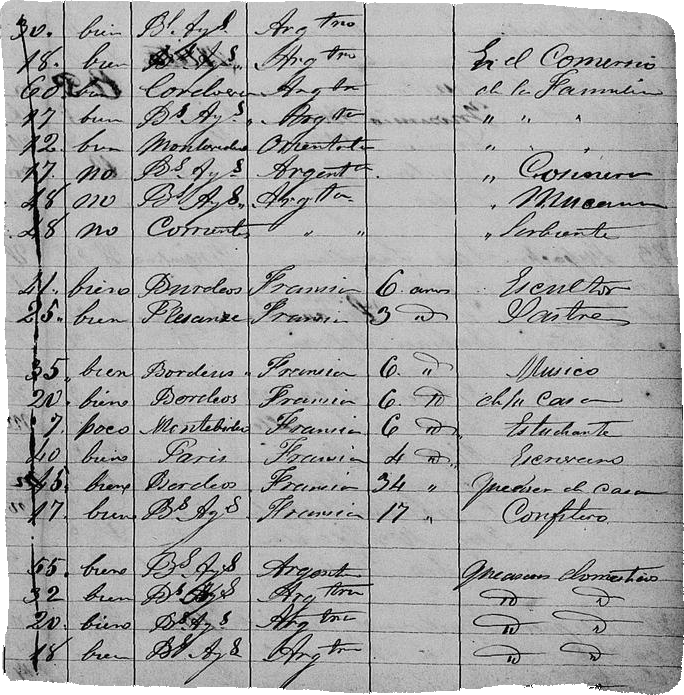 30. bien Bs Ays Argtno
18. bien Bs Ays Argtno En el Comercio
60 bien Argtn de la Familia
17 bien Bs Ays Argtna " " "
12. bien Montevideo Oriental " " "
17. no Bs Ays Argent " Cosinera
18 no Bs Ays Argtna " Mucama
28 no Corrientes " " " Sirbiente
41. biene Burdeos Francia 6 años Escultor
25. bien Francia 3 " Sastre
35 bien Bordeus Francia 6 " Musico
20. biene Bordeos Francia 6 " de la Casa
7. poco Montebideo Francia 6 " Estudiante
40 biene Paris Francia 4 " Escrivano
45. biene Bordeos Francia 34 " de casa
17. biene Bs Ays Francia 17 " Confitero
55. biene Bs Ays Argent
32 bien Bs Ays Argtna " "
20. biene Bs Ays Argtna " "
18 bien Bs Ays Argtna " "